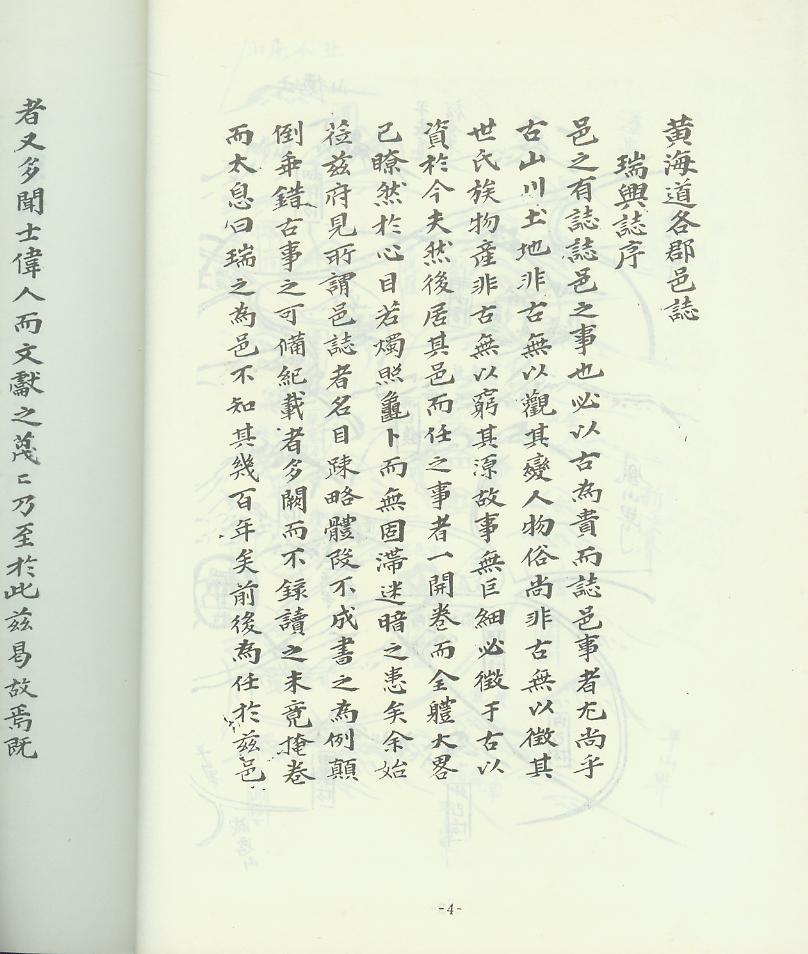 黃海道各郡邑誌
瑞興誌序
邑之有誌誌邑之事也必以古為貴而誌邑事者尤尚乎
古山川土地非古無以觀其變人物俗尚非古無以徵其
世氏族物產非古無以窮其源故事無巨細必徵于古以
資於今夫然後居其邑而任之事者一開卷而全軆大畧
已瞭然於心目若燭照龜卜而無固滯迷暗之患矣余始
莅茲府見所謂邑誌者名目疎略體段不成書之為例顛
倒乖錯古事之可備紀載者多闕而不錄讀之未竟掩卷
而太息曰瑞之為邑不知其幾百年矣前後為任於茲邑
者又多聞士偉人而文獻之蔑〻乃至於此茲曷故焉既
-4-